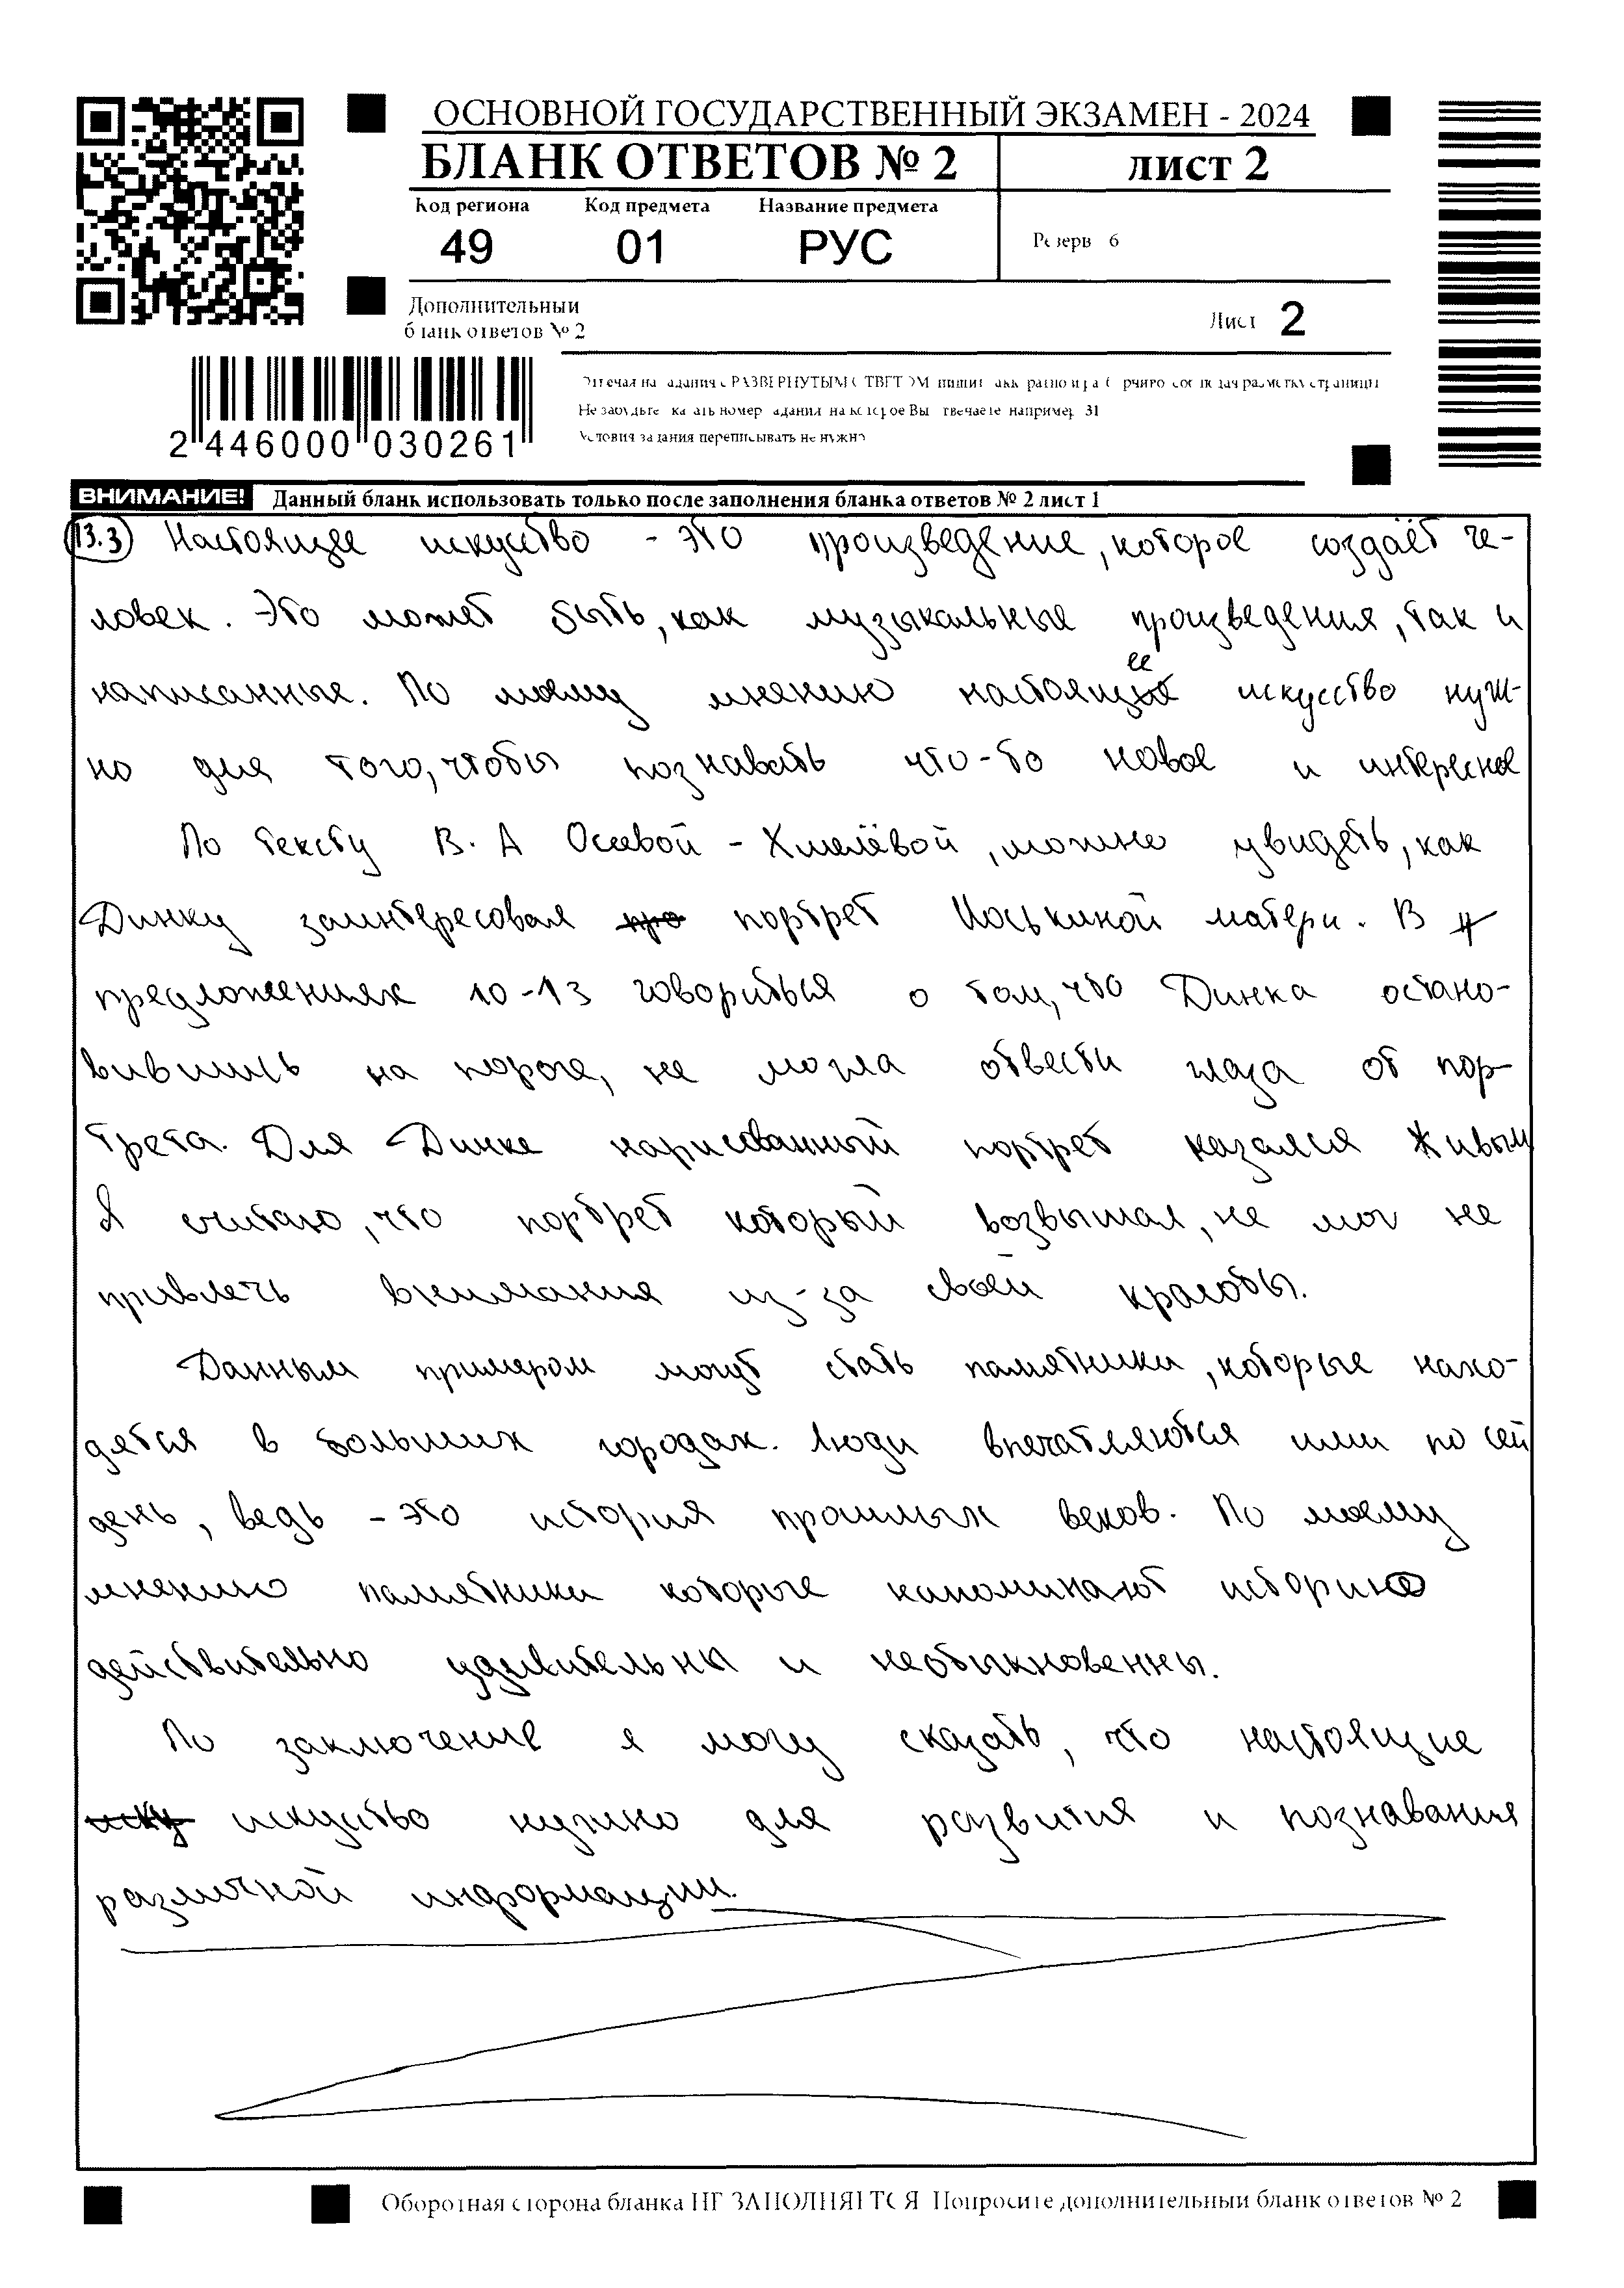 ОСНОВНОЙ ГОСУДАРСТВЕННЫЙ ЭКЗАМЕН - 2024
БЛАНК ОТВЕТОВ № 2 лист 2
Код региона Код предмета Название предмета
49 01 РУС Резерв 6
Дополнительный
бланк ответов № 2
Лист 2
2 446000 030261
Не забудьте указать номер задания на которое Вы отвечаете например 31
Условия задания переписывать не нужно
ВНИМАНИЕ! Данный бланк использовать только после заполнения бланка ответов № 2 лист 1
13.3) Настоящее искуство - это произведение, которое создаёт че-
ловек. Это может быть, как музыкальные произведения, так и
написанные. По моему мнению настоящее искусство нуж-
но для того, чтобы познавать что-то новое и интересное
По тексту В. А Осеевой - Хмелёвой, можно увидеть, как
Динку заинтересовал портрет Иоськиной матери. В
предложениях 10-13 говориться о том, что Динка остано-
вившись на пороге, не могла отвести глаза от пор-
трета. Для Динке нарисованный портрет казался живым
Я считаю, что портрет который возвышал, не мог не
привлечь внимания из-за своей красоты.
Данным примером могут стать памятники, которые нахо-
дятся в больших городах. Люди впечатляются ими по сей
день, ведь - это история прошлых веков. По моему
мнению памятники которые напоминают историю
действительно удивительны и необыкновенны.
По заключение я могу сказать, что настоящие
искуство нужно для развития и познавания
различной информации.
Оборотная сторона бланка НЕ ЗАПОЛНЯЕТСЯ Попросите дополнительный бланк ответов № 2